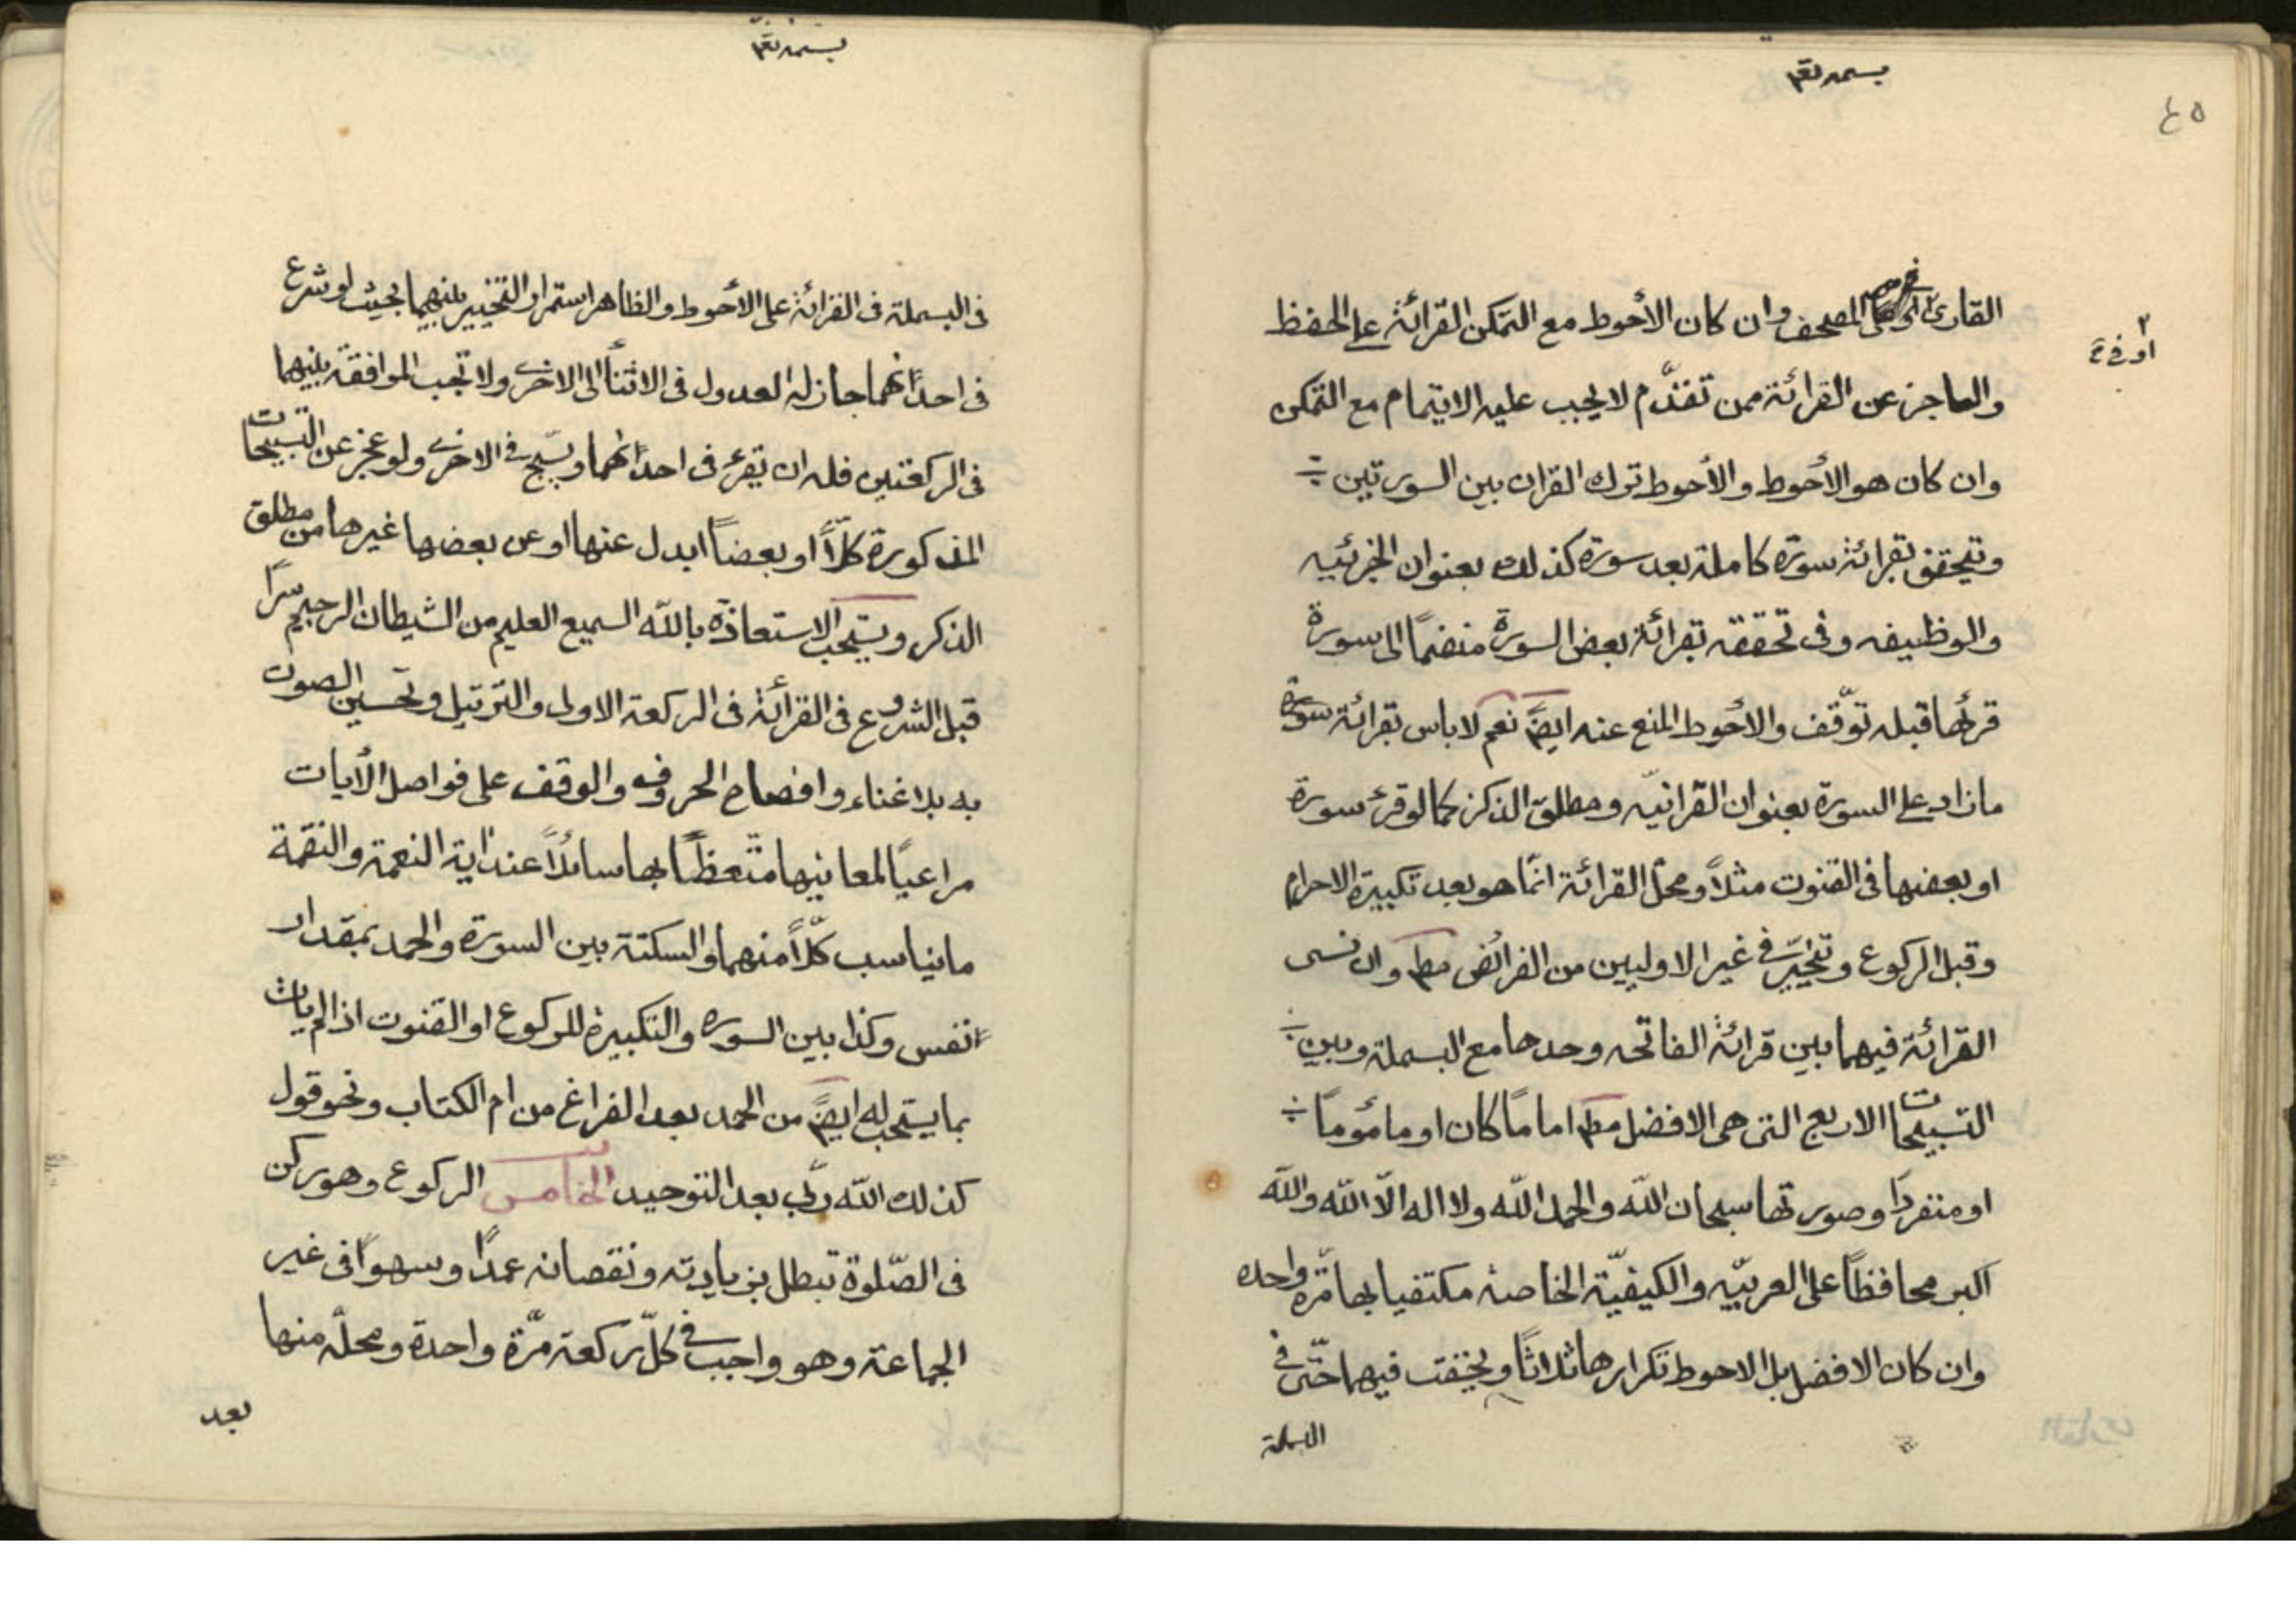 بسمه تعم
٤٥
القارئ او على المصحف وان كان الأحوط مع التمكن القرائة على الحفظ
او في
والعاجز عن القرائة ممن تقدّم لا يجب عليه الايتمام مع التمكن
وان كان هو الأحوط والأحوط ترك القران بين السورتين
ويتحقق بقرائة سورة كاملة بعد سورة كذلك بعنوان الجزئيه
والوظيفه وفى تحققه بقرائة بعض السورة منضمًا الى سورة
قرئها قبله توّقف والأحوط المنع عنه ايضً نعم لا باس بقرائة سورة
مازاد على السورة بعنوان القرانيّه ومطلق الذكر كما لو قرء سورة
او بعضها فى القنوت مثلاً ومحل القرائة انّما هو بعد تكبيرة الاحرام
وقبل الركوع ويتخيّر في غير الاوليين من الفرائض مط وان نسى
القرائة فيهما بين قرائة الفاتحه وحدها مع البسملة وبين
التسبيحات الاربع التى هى الافضل مط اماماً كان او مأموماً
او منفردًا وصورتها سبحان الله والحمد لله ولا اله الّا الله والله
اكبر محافظاً على العربيّه والكيفيّة الخاصة مكتفيا بها مرّة واحده
وان كان الافضل بل الاحوط تكرارها ثلاثاً ويخفت فيهما حتّى في
البسملة
بسمه تعم
فى البسملة فى القرائة على الأحوط والظاهر استمرار التخيير بينهما بحيث لو شرع
فى احدٰهما جاز له العدول فى الاثنأ الى الاخرى ولا تجب الموافقة بينهما
فى الركعتين فله ان يقرء فى احدٰهما ويسبّح في الاخرى ولو عجز عن التسبيحات
المذكورة كلاًّ او بعضاً ابدل عنها او عن بعضها غيرها من مطلق
الذكر ويستحب الاستعاذة بالله السميع العليم من الشيطان الرجيم سرًا
قبل الشروع فى القرائة فى الركعة الاولى والترتيل وتحسين الصوت
به بلا غناء وافصاح الحروف والوقف على فواصل الأيات
مراعيًا لمعانيها متّعظًا بها سائلاً عند اية النعمة والنقمة
ما يناسب كلّاً منهما والسكتة بين السورة والحمد بمقدار
نفس وكذا بين السوره والتكبيرة للركوع او القنوت اذا لم يات
بما يستحب له ايضً من الحمد بعد الفراغ من ام الكتاب ونحو قول
كذلك الله ربّى بعد التوحيد الخامس الركوع وهو ركن
فى الصّلوة تبطل بزيادته ونقصانه عمدًا وسهوًا فى غير
الجماعة وهو واجب في كلّ ركعة مرّة واحدة ومحلّه منها
بعد